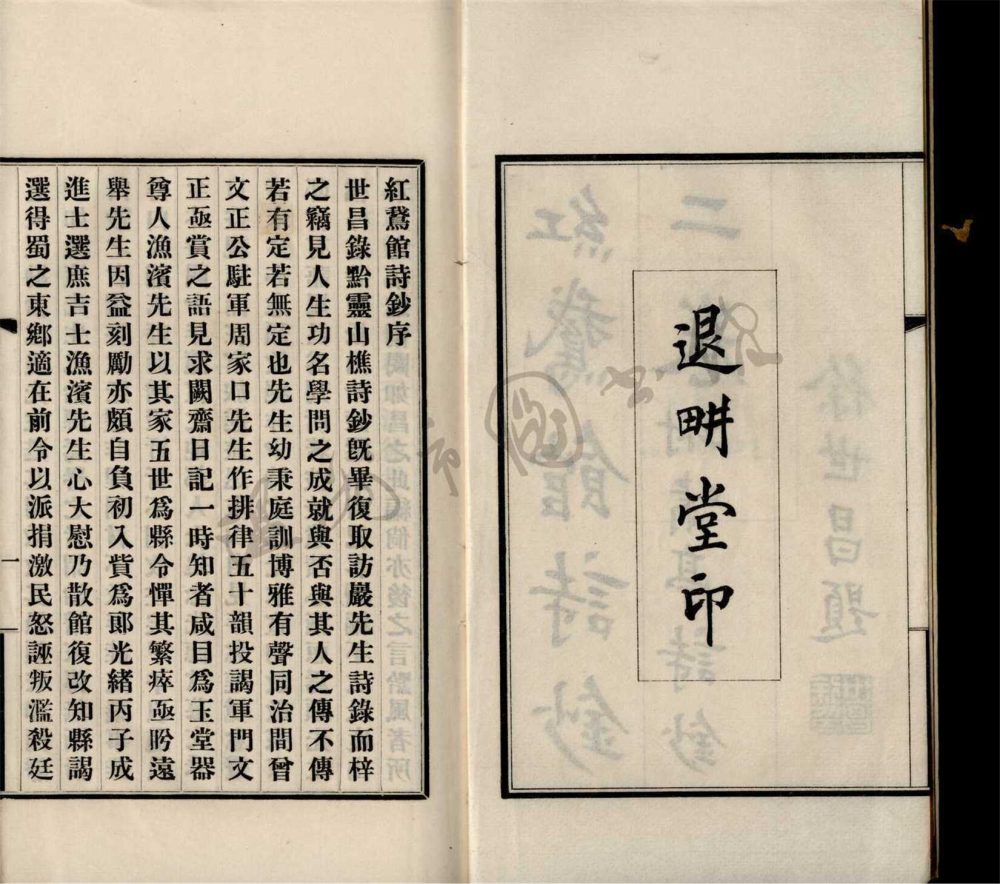 退畊堂印
紅鵞館詩鈔序
世昌錄黔靈山樵詩鈔旣畢復取訪巖先生詩錄而梓
之竊見人生功名學問之成就與否與其人之傳不傳
若有定若無定也先生幼秉庭訓博雅有聲同治間曾
文正公駐軍周家口先生作排律五十韻投謁軍門文
正亟賞之語見求闕齋日記一時知者咸目爲玉堂器
尊人漁濱先生以其家五世爲縣令憚其繁瘁亟盻遠
舉先生因益刻勵亦頗自負初入貲爲郞光緖丙子成
進士選庶吉士漁濱先生心大慰乃散館復改知縣謁
選得蜀之東鄕適在前令以派捐激民怒誣叛濫殺廷
一